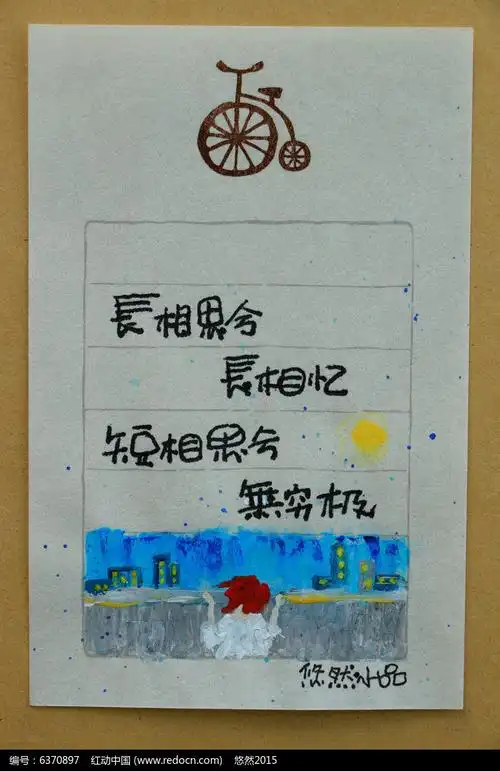 長相思兮
長相忆
短相思兮
無穷极
悠然小品
编号：6370897 红动中国 (www.redocn.com) 悠然2015